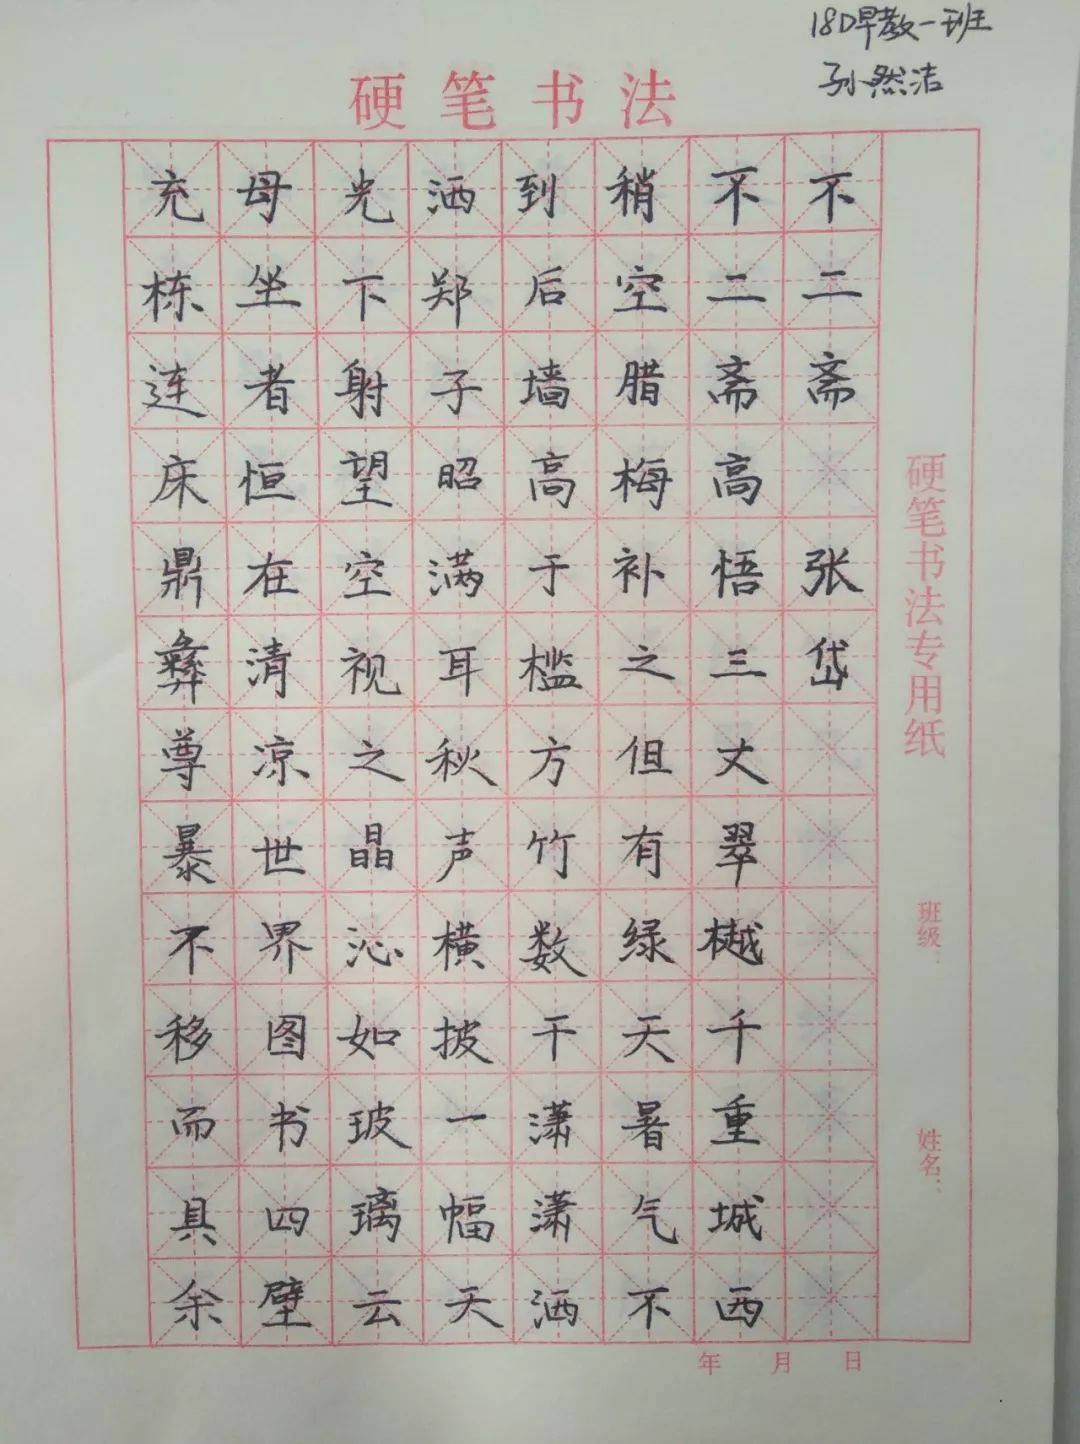 18D早教一班
孙然洁
硬笔书法
不二斋 张岱
不二斋高悟三丈翠樾千重城西
稍空腊梅补之但有绿天暑气不
到后墙高于槛方竹数干潇潇洒
洒郑子昭满耳秋声横披一幅天
光下射望空视之晶沁如玻璃云
母坐者恒在清凉世界图书四壁
充栋连床鼎彝尊罍不移而具余
硬笔书法专用纸
班级：
姓名：
年 月 日